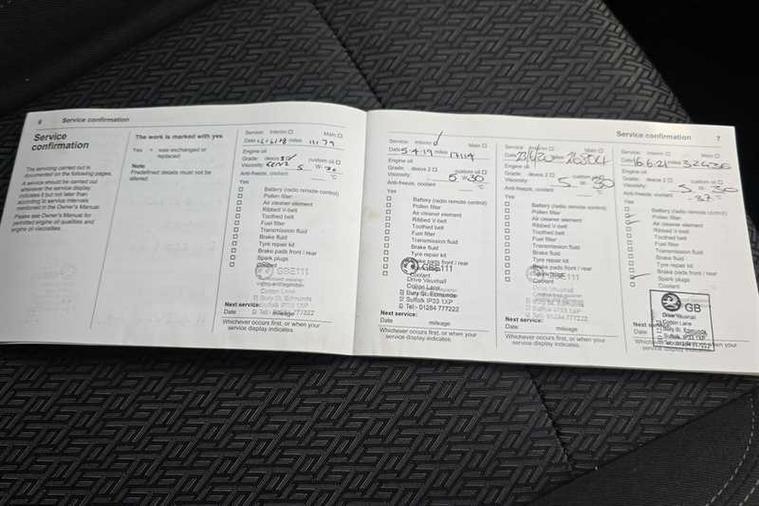 6 Service confirmation
Service
confirmation
The servicing carried out is
documented on the following pages.
A service should be carried out
whenever the service display
indicates it but not later than
according to service intervals
mentioned in the Owner's Manual.
Please see Owner's Manual for
permitted engine oil qualities and
engine oil viscosities.
The work is marked with yes
Yes = was exchanged or
replaced
Note
Predefined details must not be
altered.
Service: Interim Main
Date
Engine oil
Grade: dexos 2 custom oil
Viscosity:
Anti-freeze, coolant °C
Yes
Battery (radio remote control)
Pollen filter
Air cleaner element
Ribbed V-belt
Toothed belt
Fuel filter
Transmission fluid
Brake fluid
Tyre repair kit
Brake pads front / rear
Spark plugs
Coolant
GBE111
Bury St. Edmunds
Suffolk IP33 1XP
Tel:- 01284 777222
Next service:
Date mileage
Whichever occurs first, or when your
service display indicates.
Service: Interim Main
Date 5-4-19 miles 17114
Engine oil
Grade: dexos 2 custom oil
Viscosity: 5 = 30
Anti-freeze, coolant °C
Yes
Battery (radio remote control)
Pollen filter
Air cleaner element
Ribbed V-belt
Toothed belt
Fuel filter
Transmission fluid
Brake fluid
Tyre repair kit
Brake pads front / rear
Coolant
GBE111
Drive Vauxhall
Cotton Lane
Bury St. Edmunds
Suffolk IP33 1XP
Tel:- 01284 777222
Next service:
Date mileage
Whichever occurs first, or when your
service display indicates.
Service confirmation 7
Service: Interim Main
Date 26804
Engine oil
Grade: dexos 2 custom oil
Viscosity: 5 = 30
Anti-freeze, coolant
Yes
Battery (radio remote control)
Pollen filter
Air cleaner element
Ribbed V-belt
Toothed belt
Fuel filter
Transmission fluid
Brake fluid
Tyre repair kit
Brake pads front / rear
GBE111
Drive Vauxhall
Next service:
Date mileage
Whichever occurs first, or when your
service display indicates.
Service: Interim Main
Date 16.6.21 miles
Engine oil
Grade: dexos 2 custom oil
Viscosity: 5 = 30
Anti-freeze, coolant -37°C
Yes
Battery (radio remote control)
Pollen filter
Air cleaner element
Ribbed V-belt
Toothed belt
Fuel filter
Transmission fluid
Brake fluid
Tyre repair kit
Brake pads front / rear
Spark plugs
Coolant
GB
Drive Vauxhall
Cotton Lane
Bury St. Edmunds
Suffolk IP33 1XP